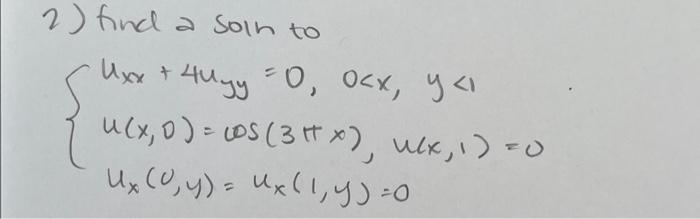 2) find a soln to
u_xx + 4u_yy = 0, 0<x, y<1
u(x,0) = cos(3πx), u(x,1) = 0
u_x(0,y) = u_x(1,y) = 0